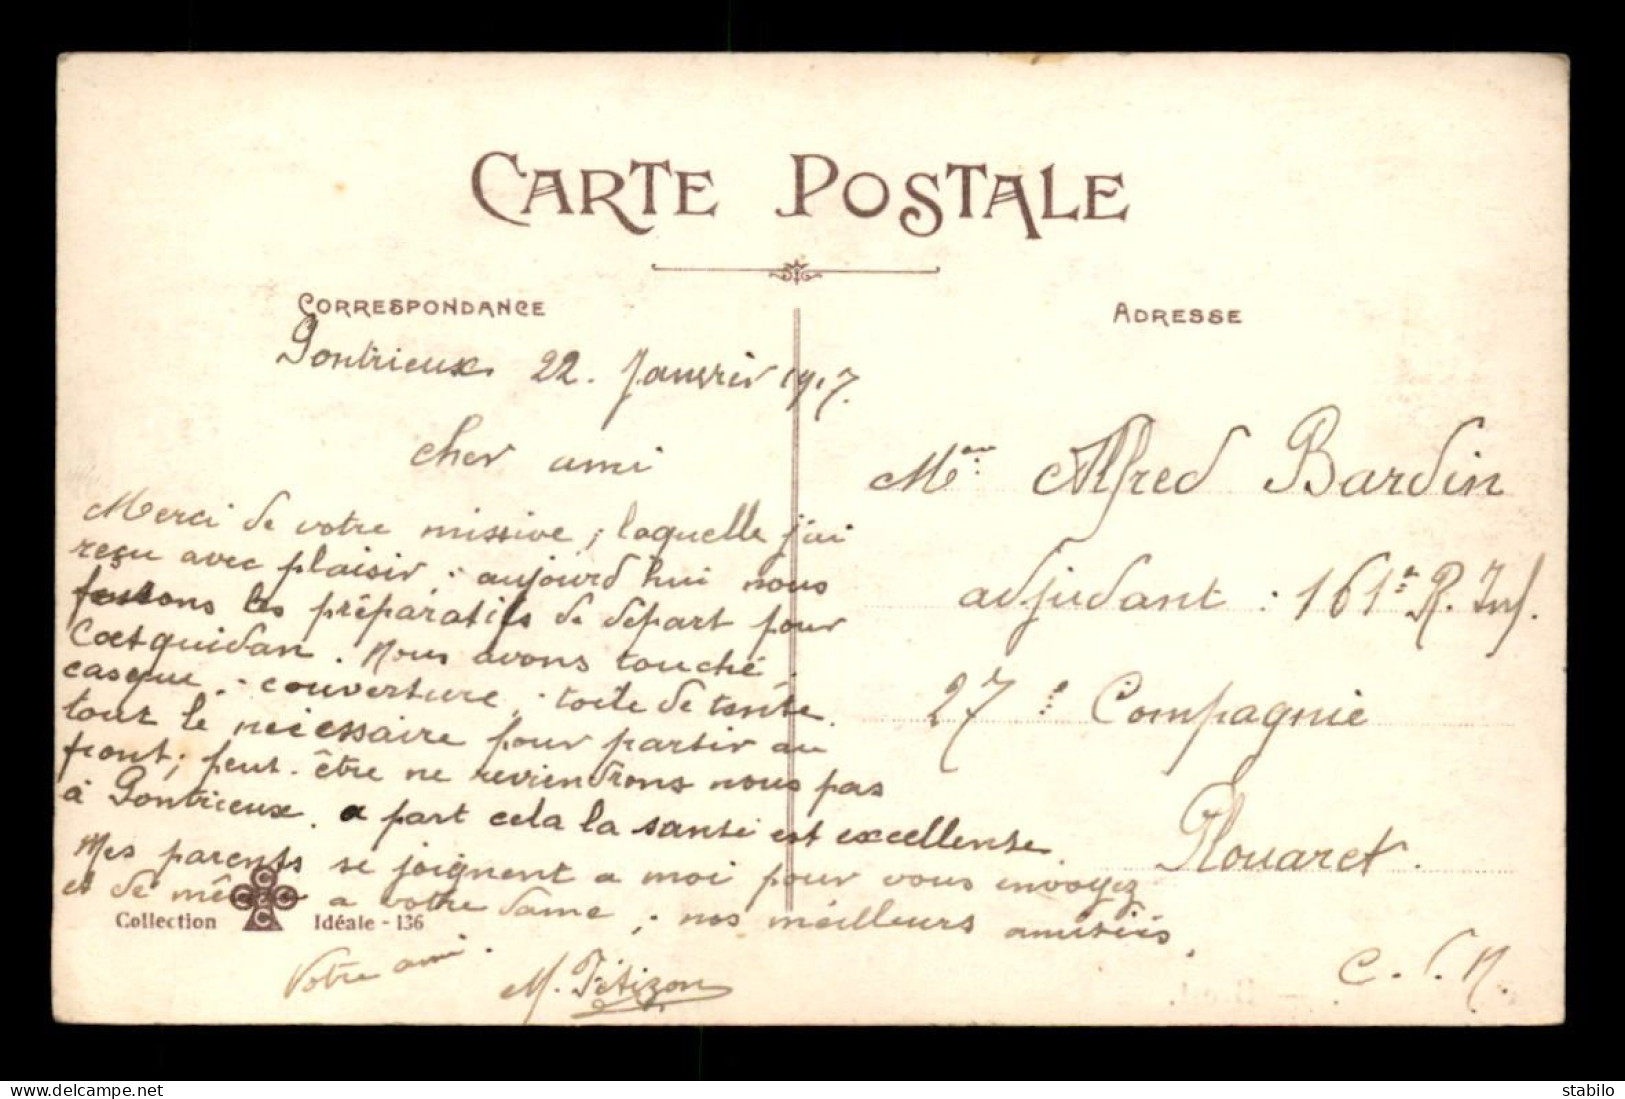 CARTE POSTALE
CORRESPONDANCE
Pontrieux 22. Janvrier 1917.
cher ami
Merci de votre missive ; laquelle j'ai
reçu avec plaisir : aujourd hui nous
faisons les préparatifs de départ pour
Coetquidan. Nous avons touché
casque. - couverture, - toile de tente.
tout le nécessaire pour partir au
front; peut-être ne reviendrons nous pas
à Pontrieux. a part cela la santé est excellente.
Mes parents se joignent a moi pour vous envoyez
et de même a votre dame ; nos meilleurs amitiés.
Votre ami.
M. Pétizon
Collection Idéale - 136
ADRESSE
Alfred Bardin
adjudant : 161e R. Inf.
27e Compagnie
Plouaret.
C. d. N.
stabilo